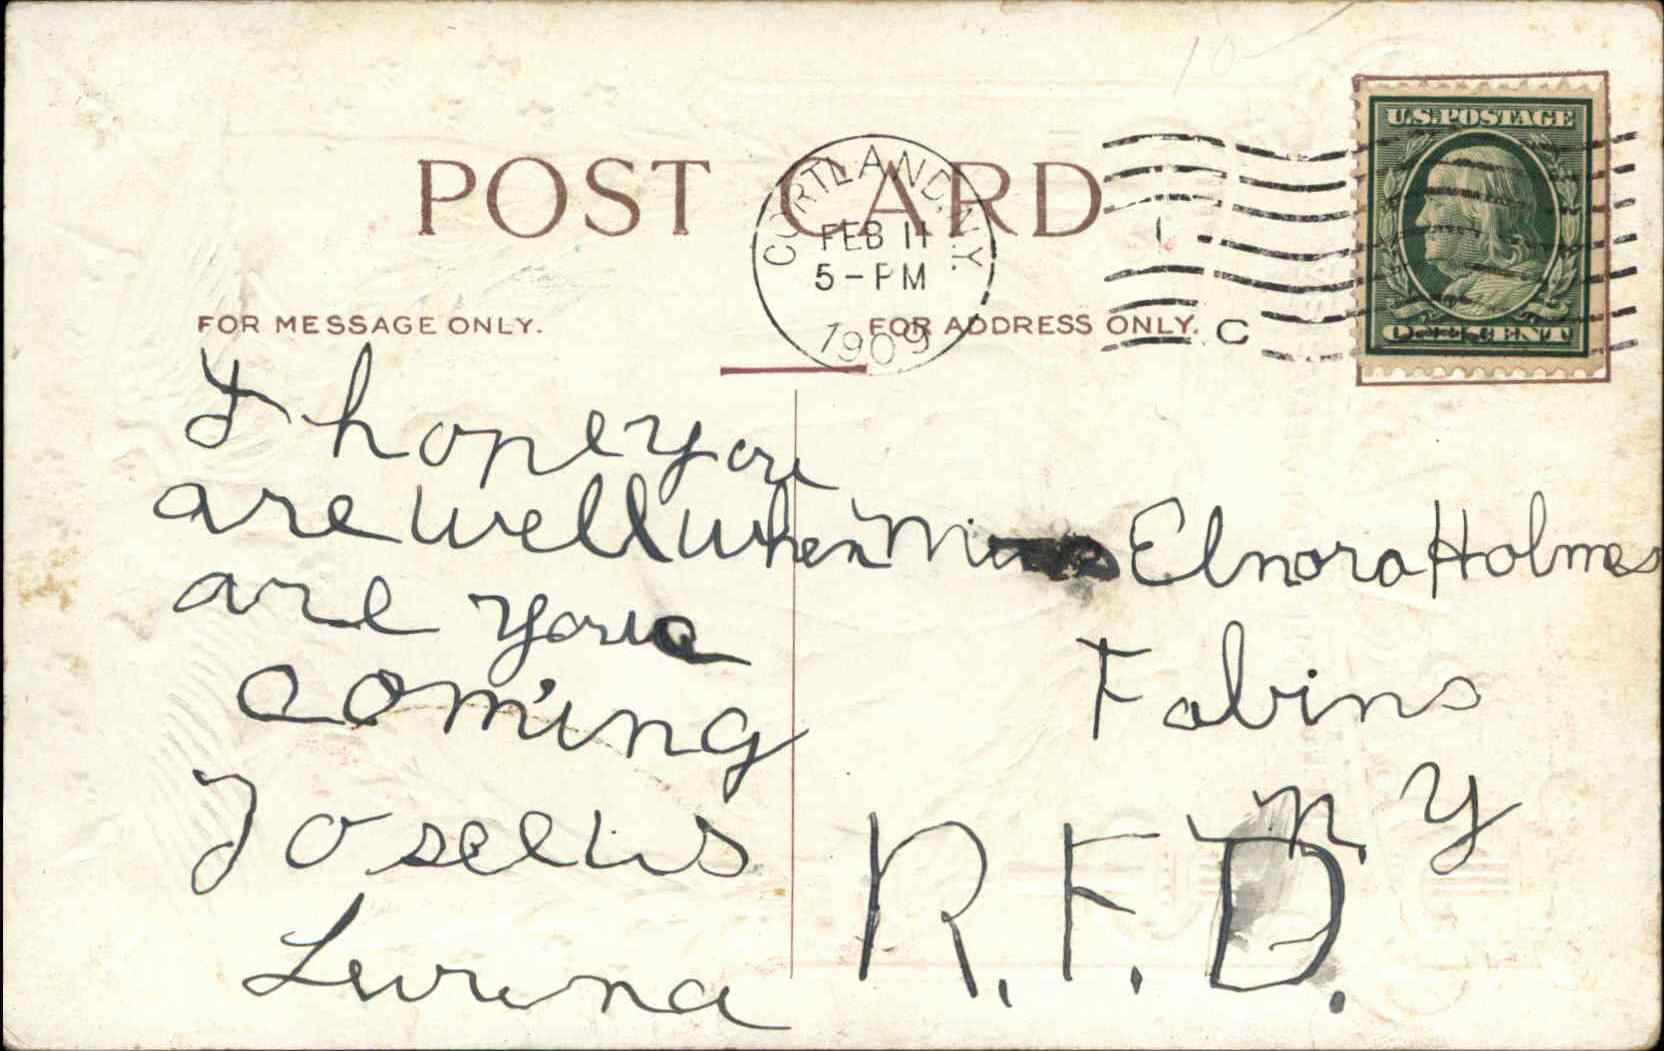 10
U.S. POSTAGE
POST CARD
CORTLAND, N.Y.
FEB 11
5 - PM
1909
FOR MESSAGE ONLY.
FOR ADDRESS ONLY.
C
ONE CENT
I hope you
are well when
are you
coming
To see us
Lurena
Miss Elnora Holmes
Fabins
N Y
R. F. D.